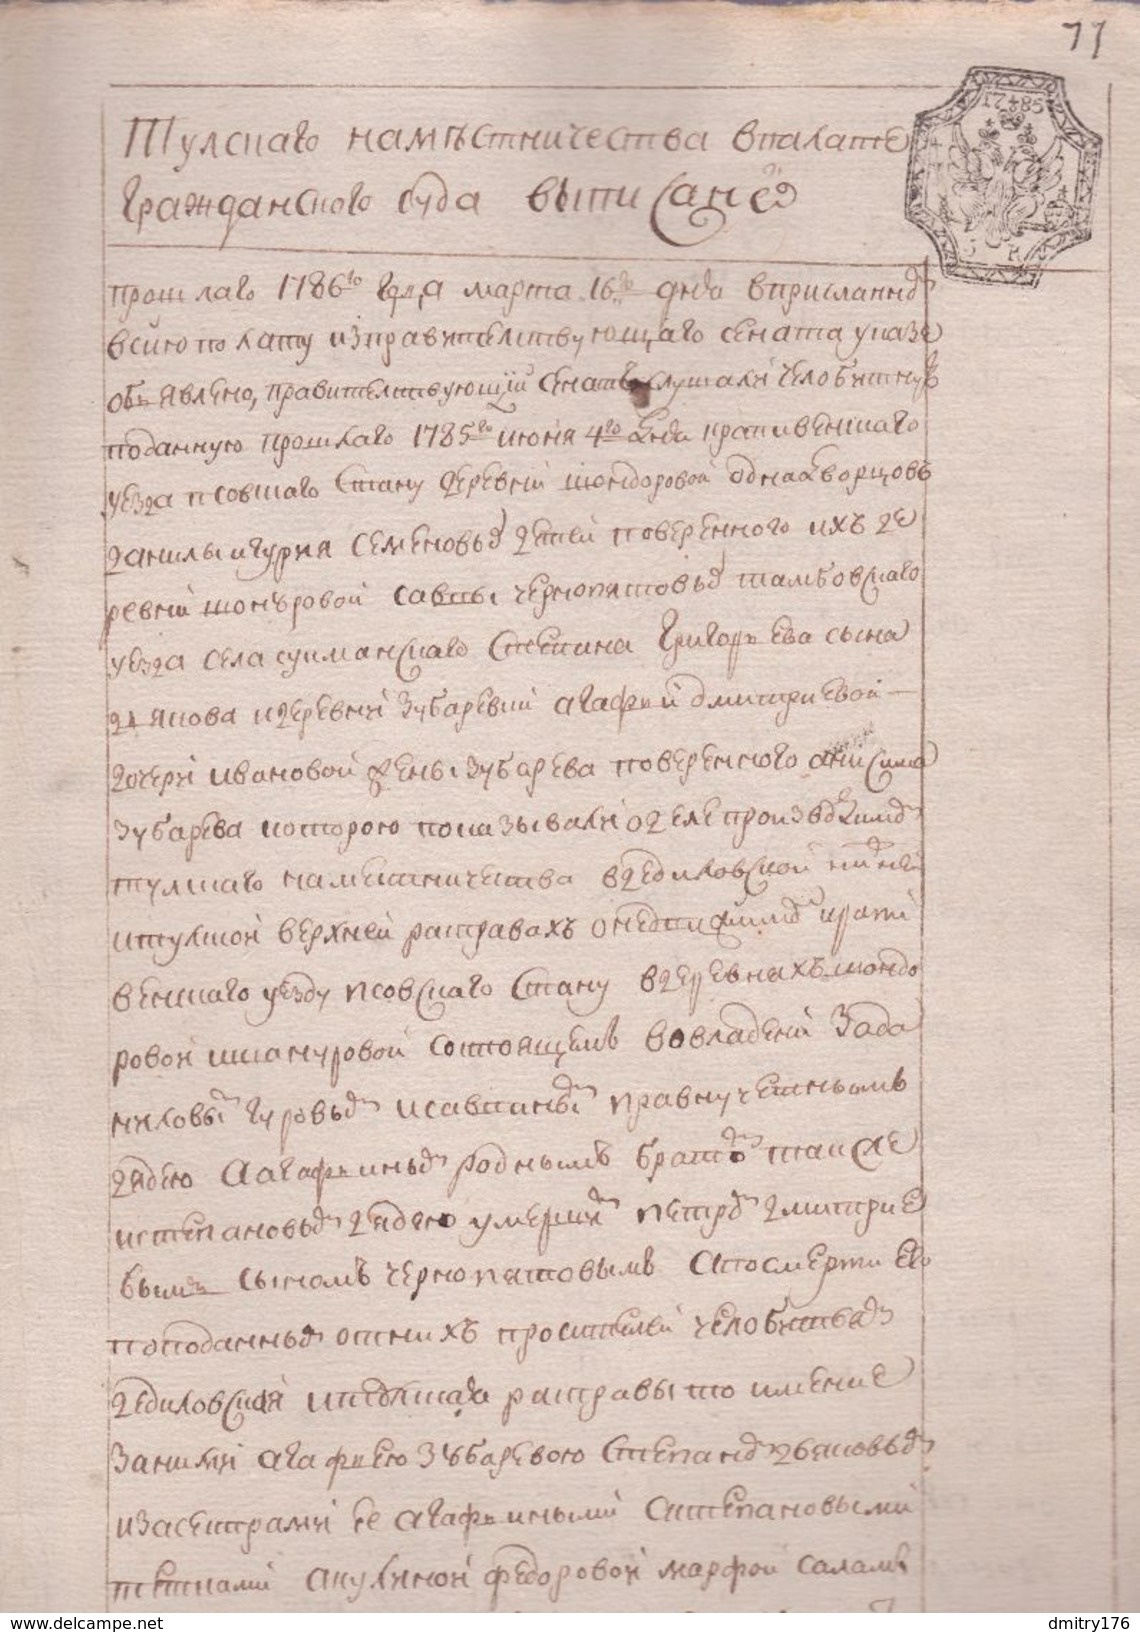 77
17 85
Тулскаго наместничества впалате
Гражданского суда выписано
прошлаго 1786го года марта 16го дня вприсланном
всию полату изправителствующаго сената указе
объявлено, правителствующий сенат слушали челобитную
поданную прошлаго 1785го июня 4го дня крапивенскаго
уезда псовскаго стану деревни шондоровой однадворцовъ
данилы игурия семеновых детей поверенного ихъ де
ревни савы чернопятовых тамбовскаго
уезда села сукманскаго степана Григорьева сына
дьякова идеревни зубаревки агафьи дмитриевой
дочери ивановой жены зубарева поверенного анисима
зубарева которою показывали о деле производимом
тулскаго наместничества вдедиловской нижней
итулской верхней расправахъ крапи
венскаго уезду псовскаго стану вдеревняхъ шондо
ровой состоящемъ вовладении зада
ниловым гуровым исавиным правнучетнымъ
дядею аагафьиным родным братом также
истепановым дядею умершим петром дмитрие
вым сыномъ чернопятовымъ апосмерти ево
поподанным отнихъ просителей челобитьям
дедиловская расправы то имение
заними агафьею зубаревою степаном дьяковым
изасестрами ее агафьиными астепановыми
тетками акулиной федоровой марфой
www.delcampe.net
dmitry176